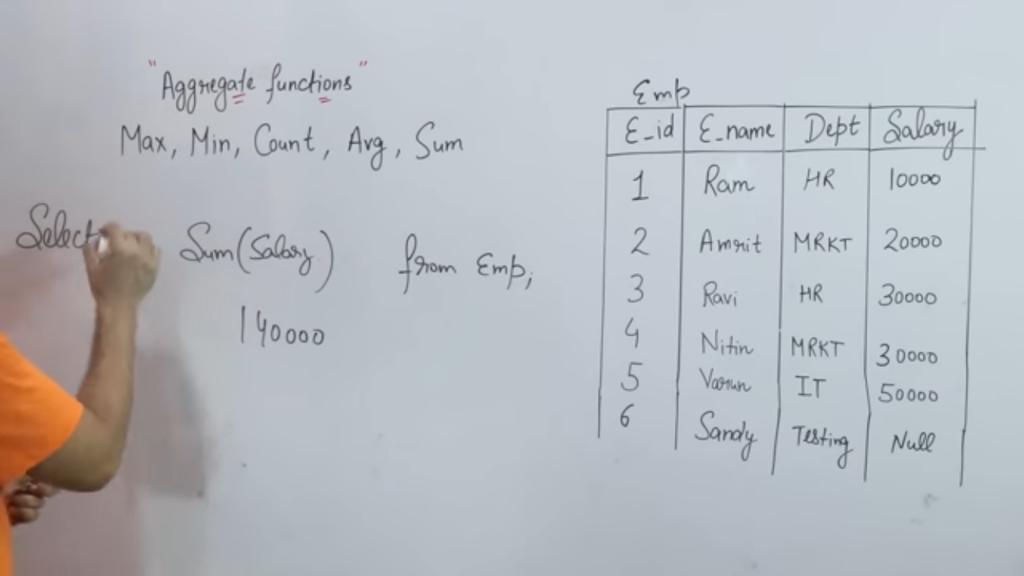 "Aggregate functions"
Max, Min, Count, Avg, Sum
Select Sum(Salary) from Emp;
140000
Emp
E_id E_name Dept Salary
1 Ram HR 10000
2 Amrit MRKT 20000
3 Ravi HR 30000
4 Nitin MRKT 30000
5 Varun IT 50000
6 Sandy Testing Null